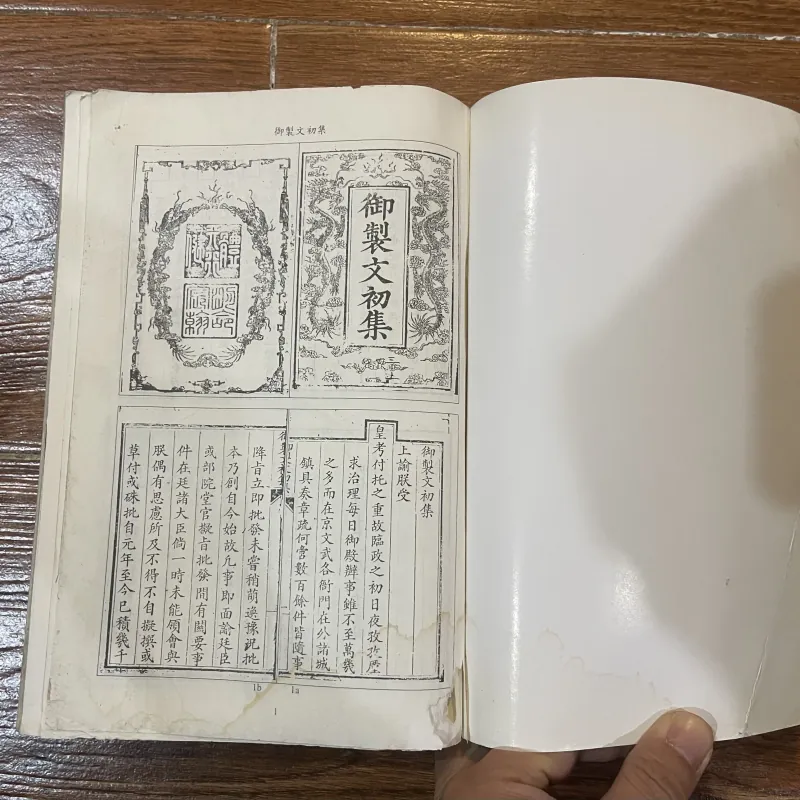 御製文初集
御製文初集
御製文初集
上諭朕受
皇考付托之重故臨政之初日夜孜孜
求治理每日御殿辦事雖不至萬幾
之多而在京文武各衙門在外諸城
鎮具奏章疏何啻數百餘件皆隨事
降旨立即批發未嘗稍萌逸豫況批
本乃創自今始故凡事即面諭廷臣
或部院堂官擬旨批發間有關要事
件在廷諸大臣倘一時未能領會與
朕偶有思慮所及不得不自擬撰或
草付或硃批自元年至今已積幾千
1b 1a
1